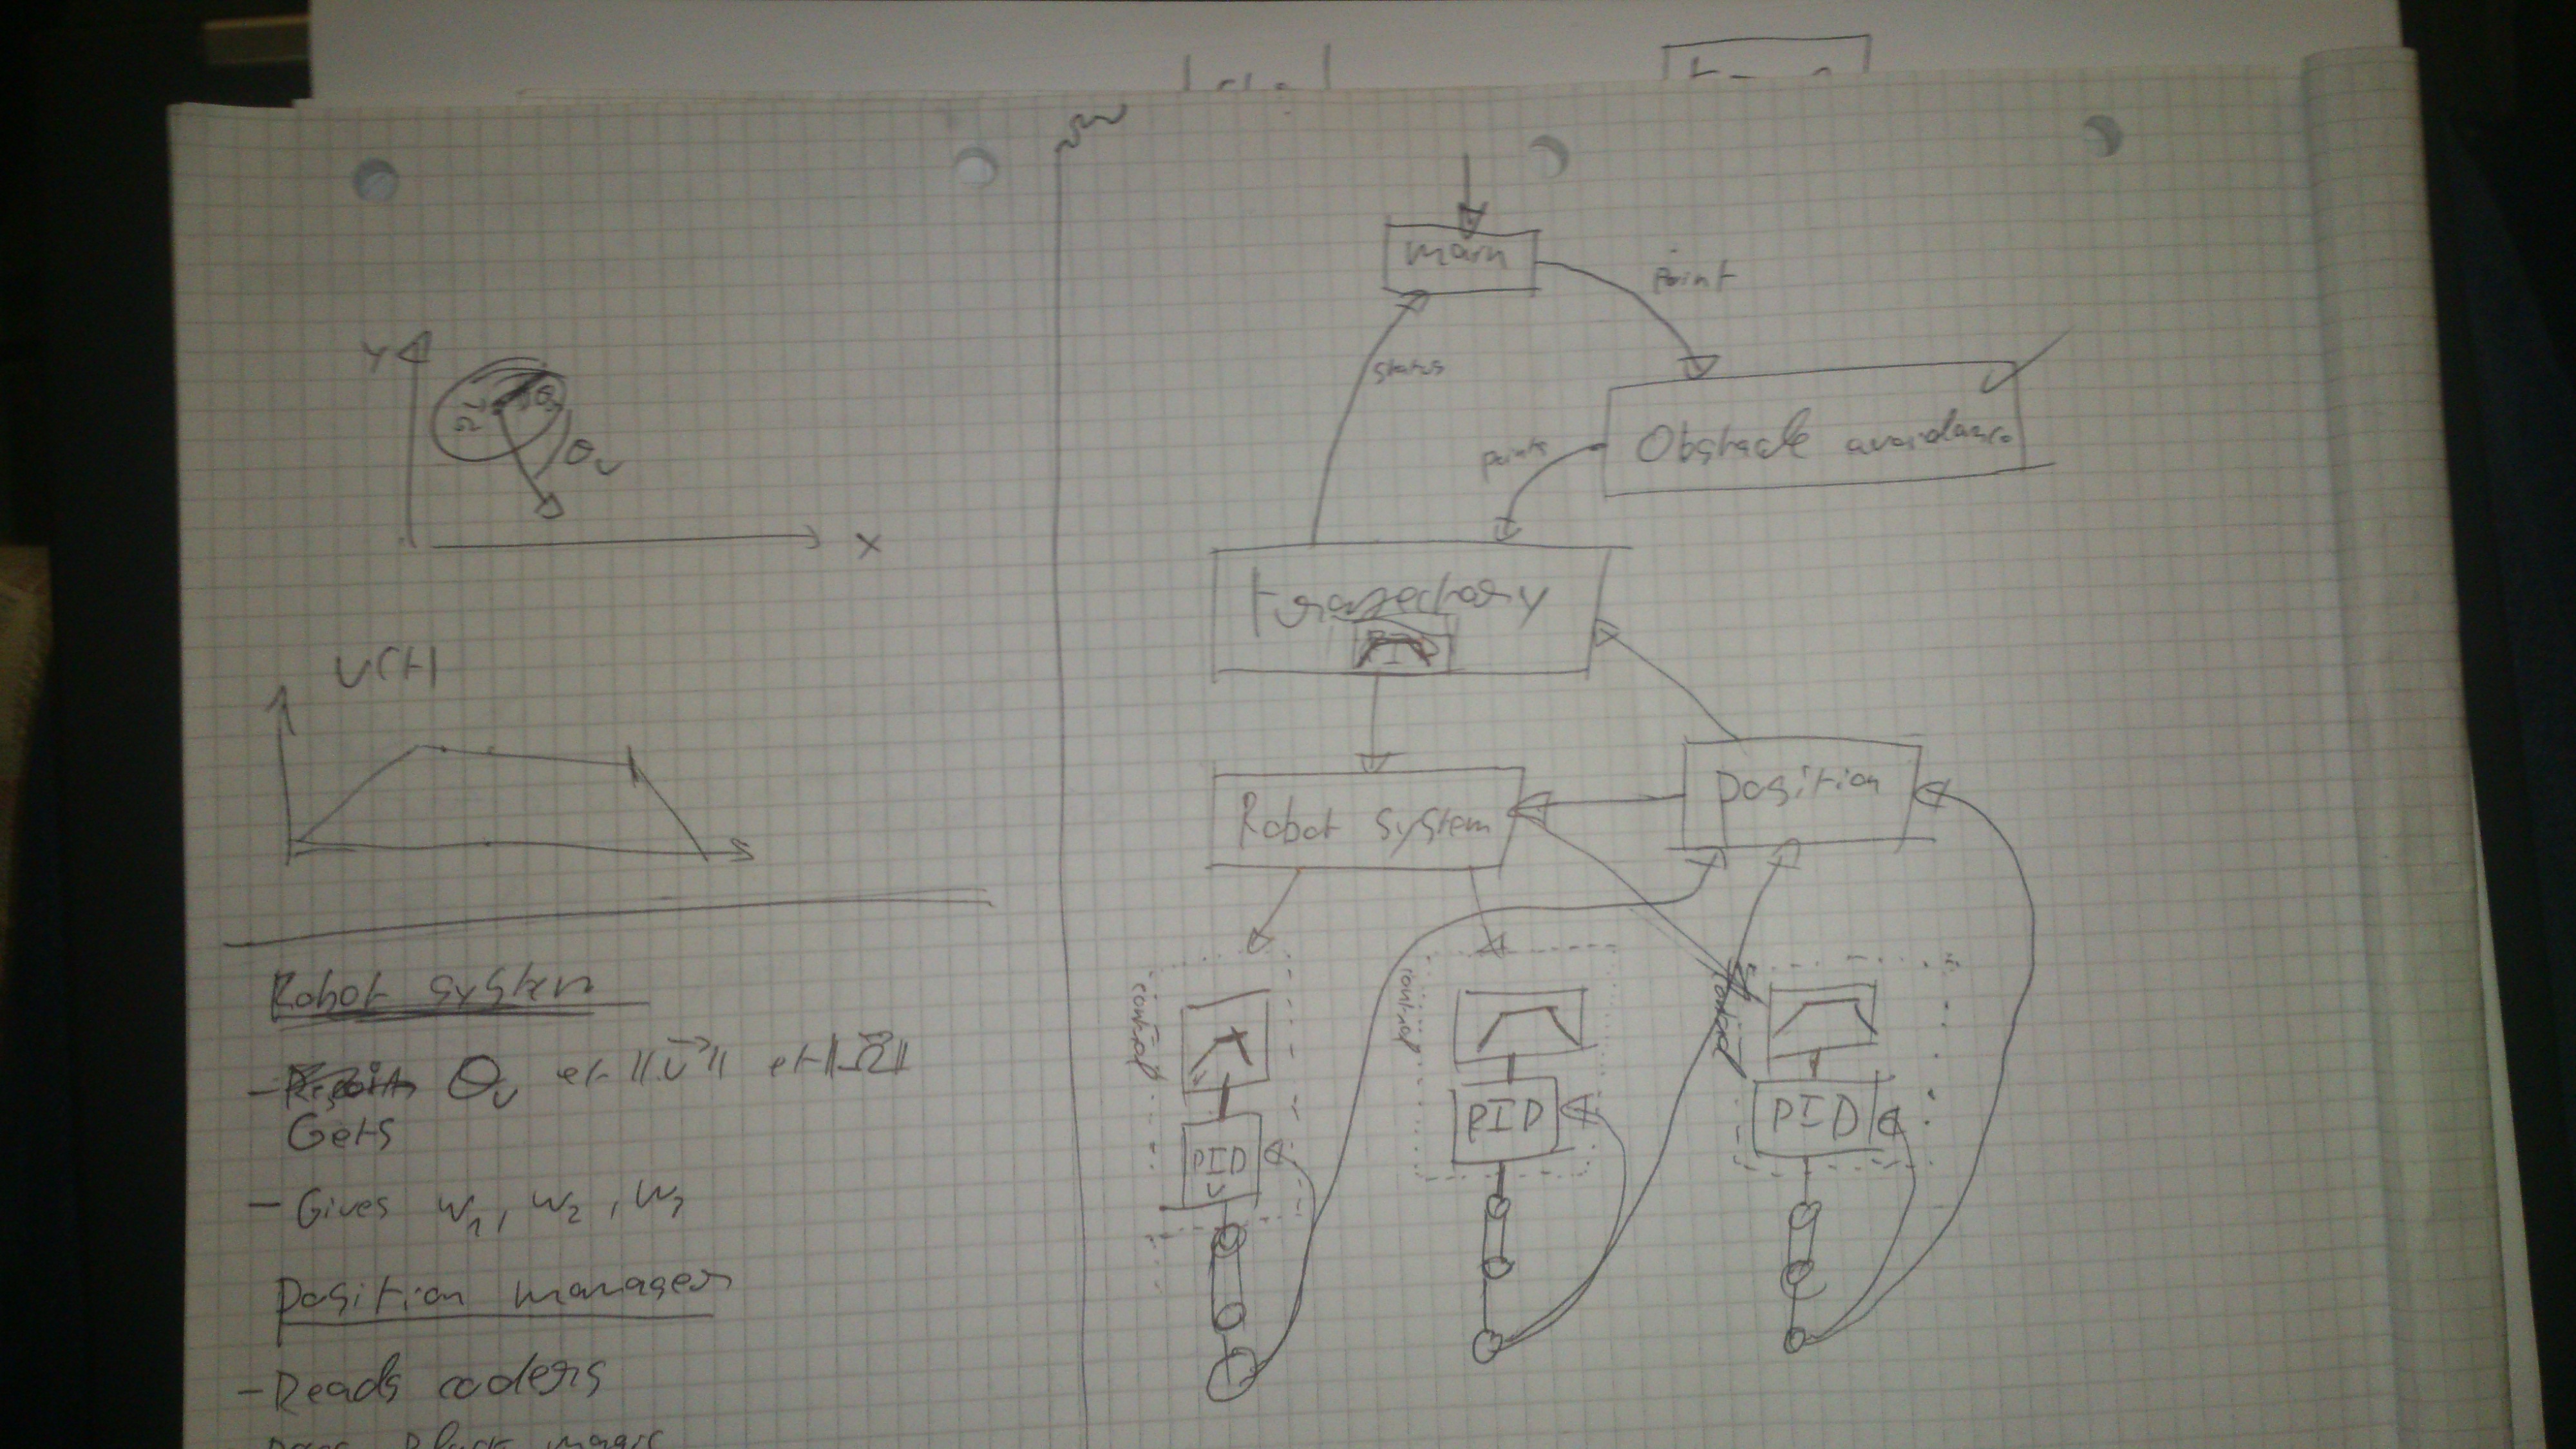 Y
θv
X
V(t)
Robot system
- θv et ||V|| et ||Ω||
Gets
- Gives w1, w2, w3
Position manager
- Reads coders
Does Black magic
main
Point
status
Obstacle avoidance
points
trajectory
Robot system
position
control
control
control
PID
V
PID
PID